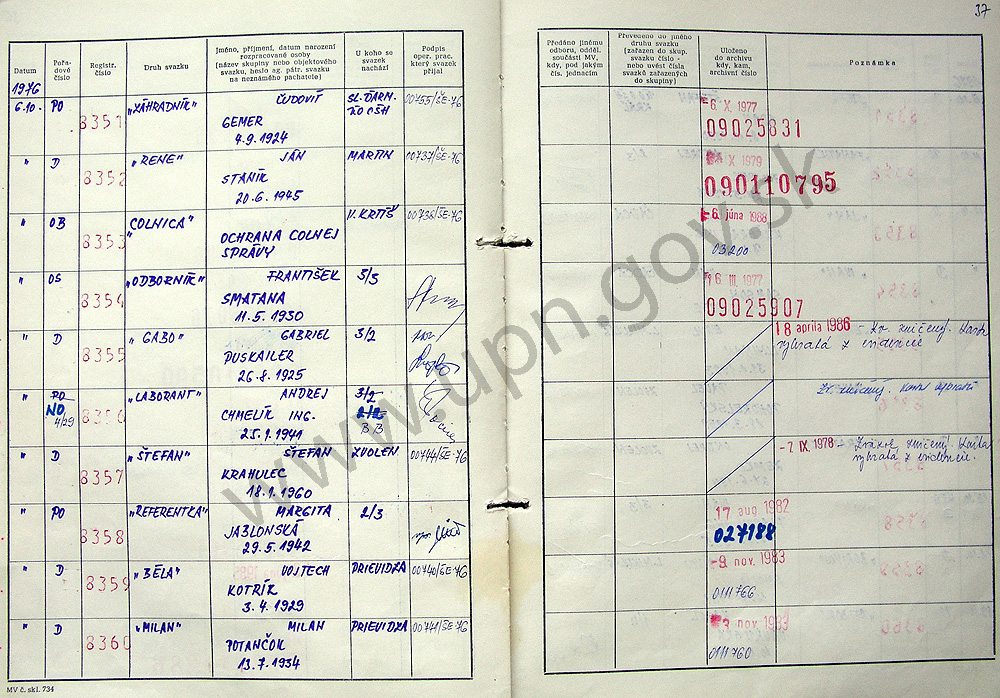 37
Datum
Pořadové číslo
Registr. číslo
Druh svazku
Jméno, příjmení, datum narození rozpracované osoby (název skupiny nebo objektového svazku, heslo ag. pátr. svazku na neznámého pachatele)
U koho se svazek nachází
Podpis oper. prac. který svazek přijal
Předáno jinému odboru, odděl. součásti MV, kdy, pod jakým čís. jednacím
Převedeno do jiného druhu svazku (zařazen do skup. svazku číslo - nebo uvést čísla svazků zařazených do skupiny)
Uloženo do archivu kdy, kam, archivní číslo
Poznámka
1976
6.10. PO 8351 „ZÁHRADNÍK" ĽUDOVÍT
GEMER
4.9.1924
00755/ŠE-76
6. X. 1977
09025831
" D 8352 „RENE" JÁN MARTIN 00737/ŠE-76
STANÍK
20.6.1945
X 1979
090110795
" OB 8353 „COLNICA" V. KRTÍŠ 00736/ŠE-76
OCHRANA COLNEJ
SPRÁVY
6. júna 1988
03200
" OS 8354 „ODBORNÍK" FRANTIŠEK 5/3
SMATANA
11.5.1930
16 III. 1977
09025907
" D 8355 „GABO" GABRIEL 3/2
PUSKAILER
26.8.1925
18 apríla 1986 - Zv. zničený. Karta
vybratá z evidencie
" PO 8356 „LABORANT" ANDREJ 3/2
NO
4/29
CHMELÍK ING. 2/2
25.1.1941 BB
Zv. zničený. Karta vybratá
" D 8357 „ŠTEFAN" ŠTEFAN ZVOLEN 00744/ŠE-76
KRAHULEC
18.1.1960
-7 IX. 1978 - Zväzok zničený karta
vybratá z evidencie.
" PO 8358 „REFERENTKA" MARGITA 2/3
JABLONSKÁ
29.5.1942
17 aug 1982
027188
" D 8359 „BÉLA" VOJTECH PRIEVIDZA 00740/ŠE-76
KOTRÍK
3.4.1929
-9 nov. 1983
0111766
" D 8360 „MILAN" MILAN PRIEVIDZA 00741/ŠE-76
POTANČOK
13.7.1934
3 nov. 1983
0111760
MV č. skl. 734
www.upn.gov.sk